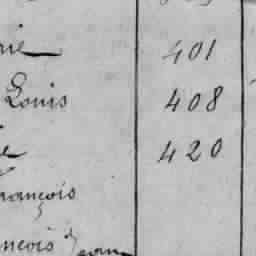 rie 401
Louis 408
e 420
rançois
ncois